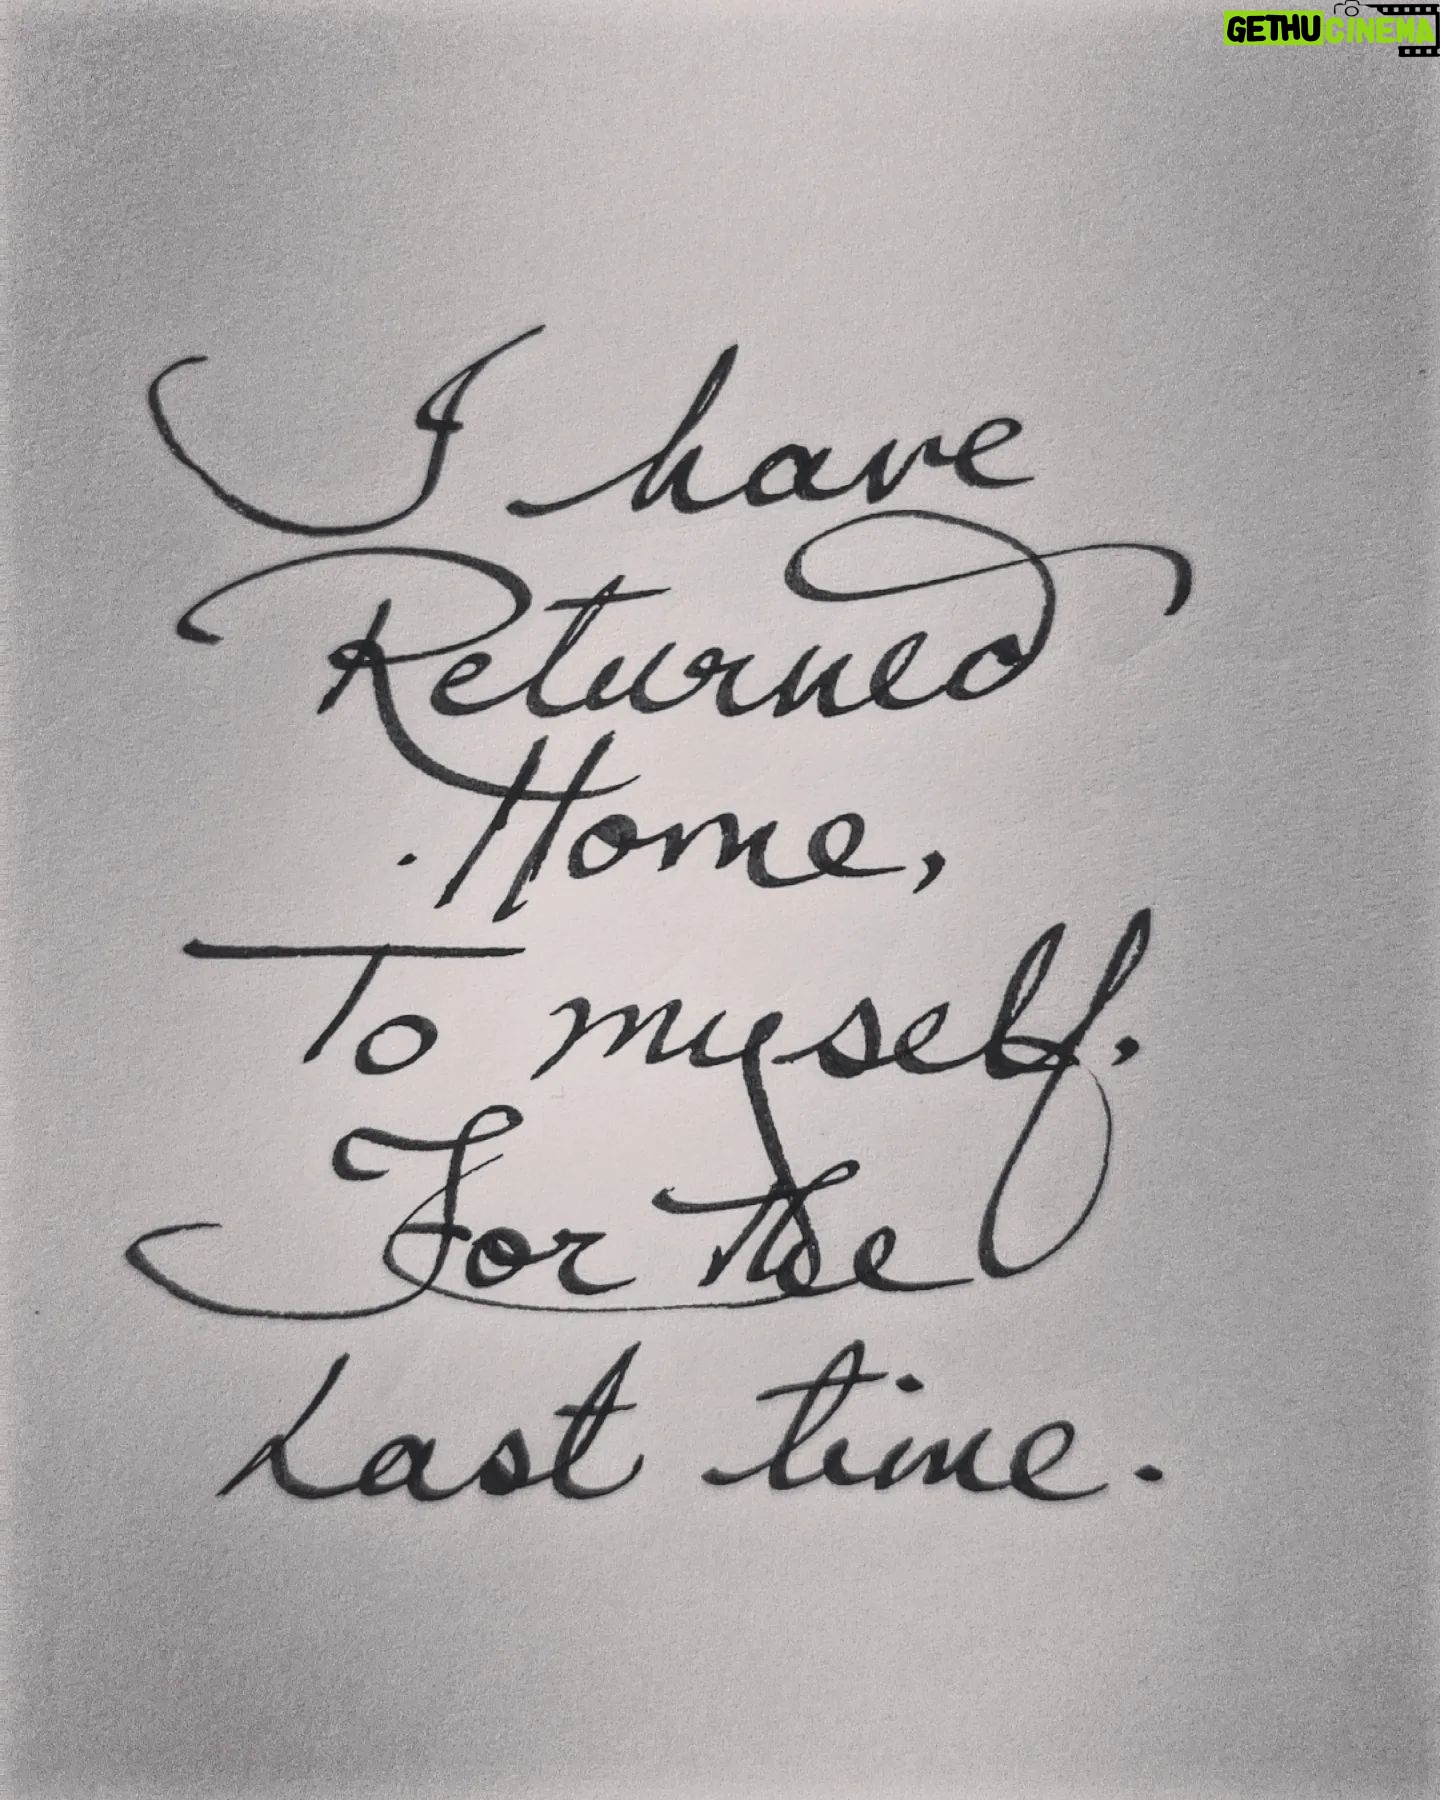 GETHU CINEMA
I have
Returned
Home,
To myself.
For the
Last time.